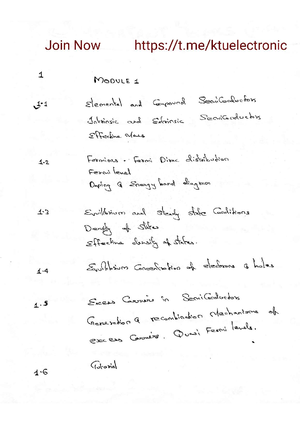 Join Now https://t.me/ktuelectronic
1 MODULE 1
1.1 Elemental and Compound SemiConductors
Intrinsic and Extrinsic SemiConductors
Effective Mass
1.2 Fermions - Fermi Dirac distribution
Fermi level
Doping & Energy band diagram
1.3 Equilibrium and Steady state Conditions
Density of States
Effective density of states.
1.4 Equilibrium Concentration of electrons & holes
1.5 Excess Carriers in SemiConductors
Generation & recombination Mechanisms of
excess Carriers. Quasi Fermi levels.
1.6 Tutorial